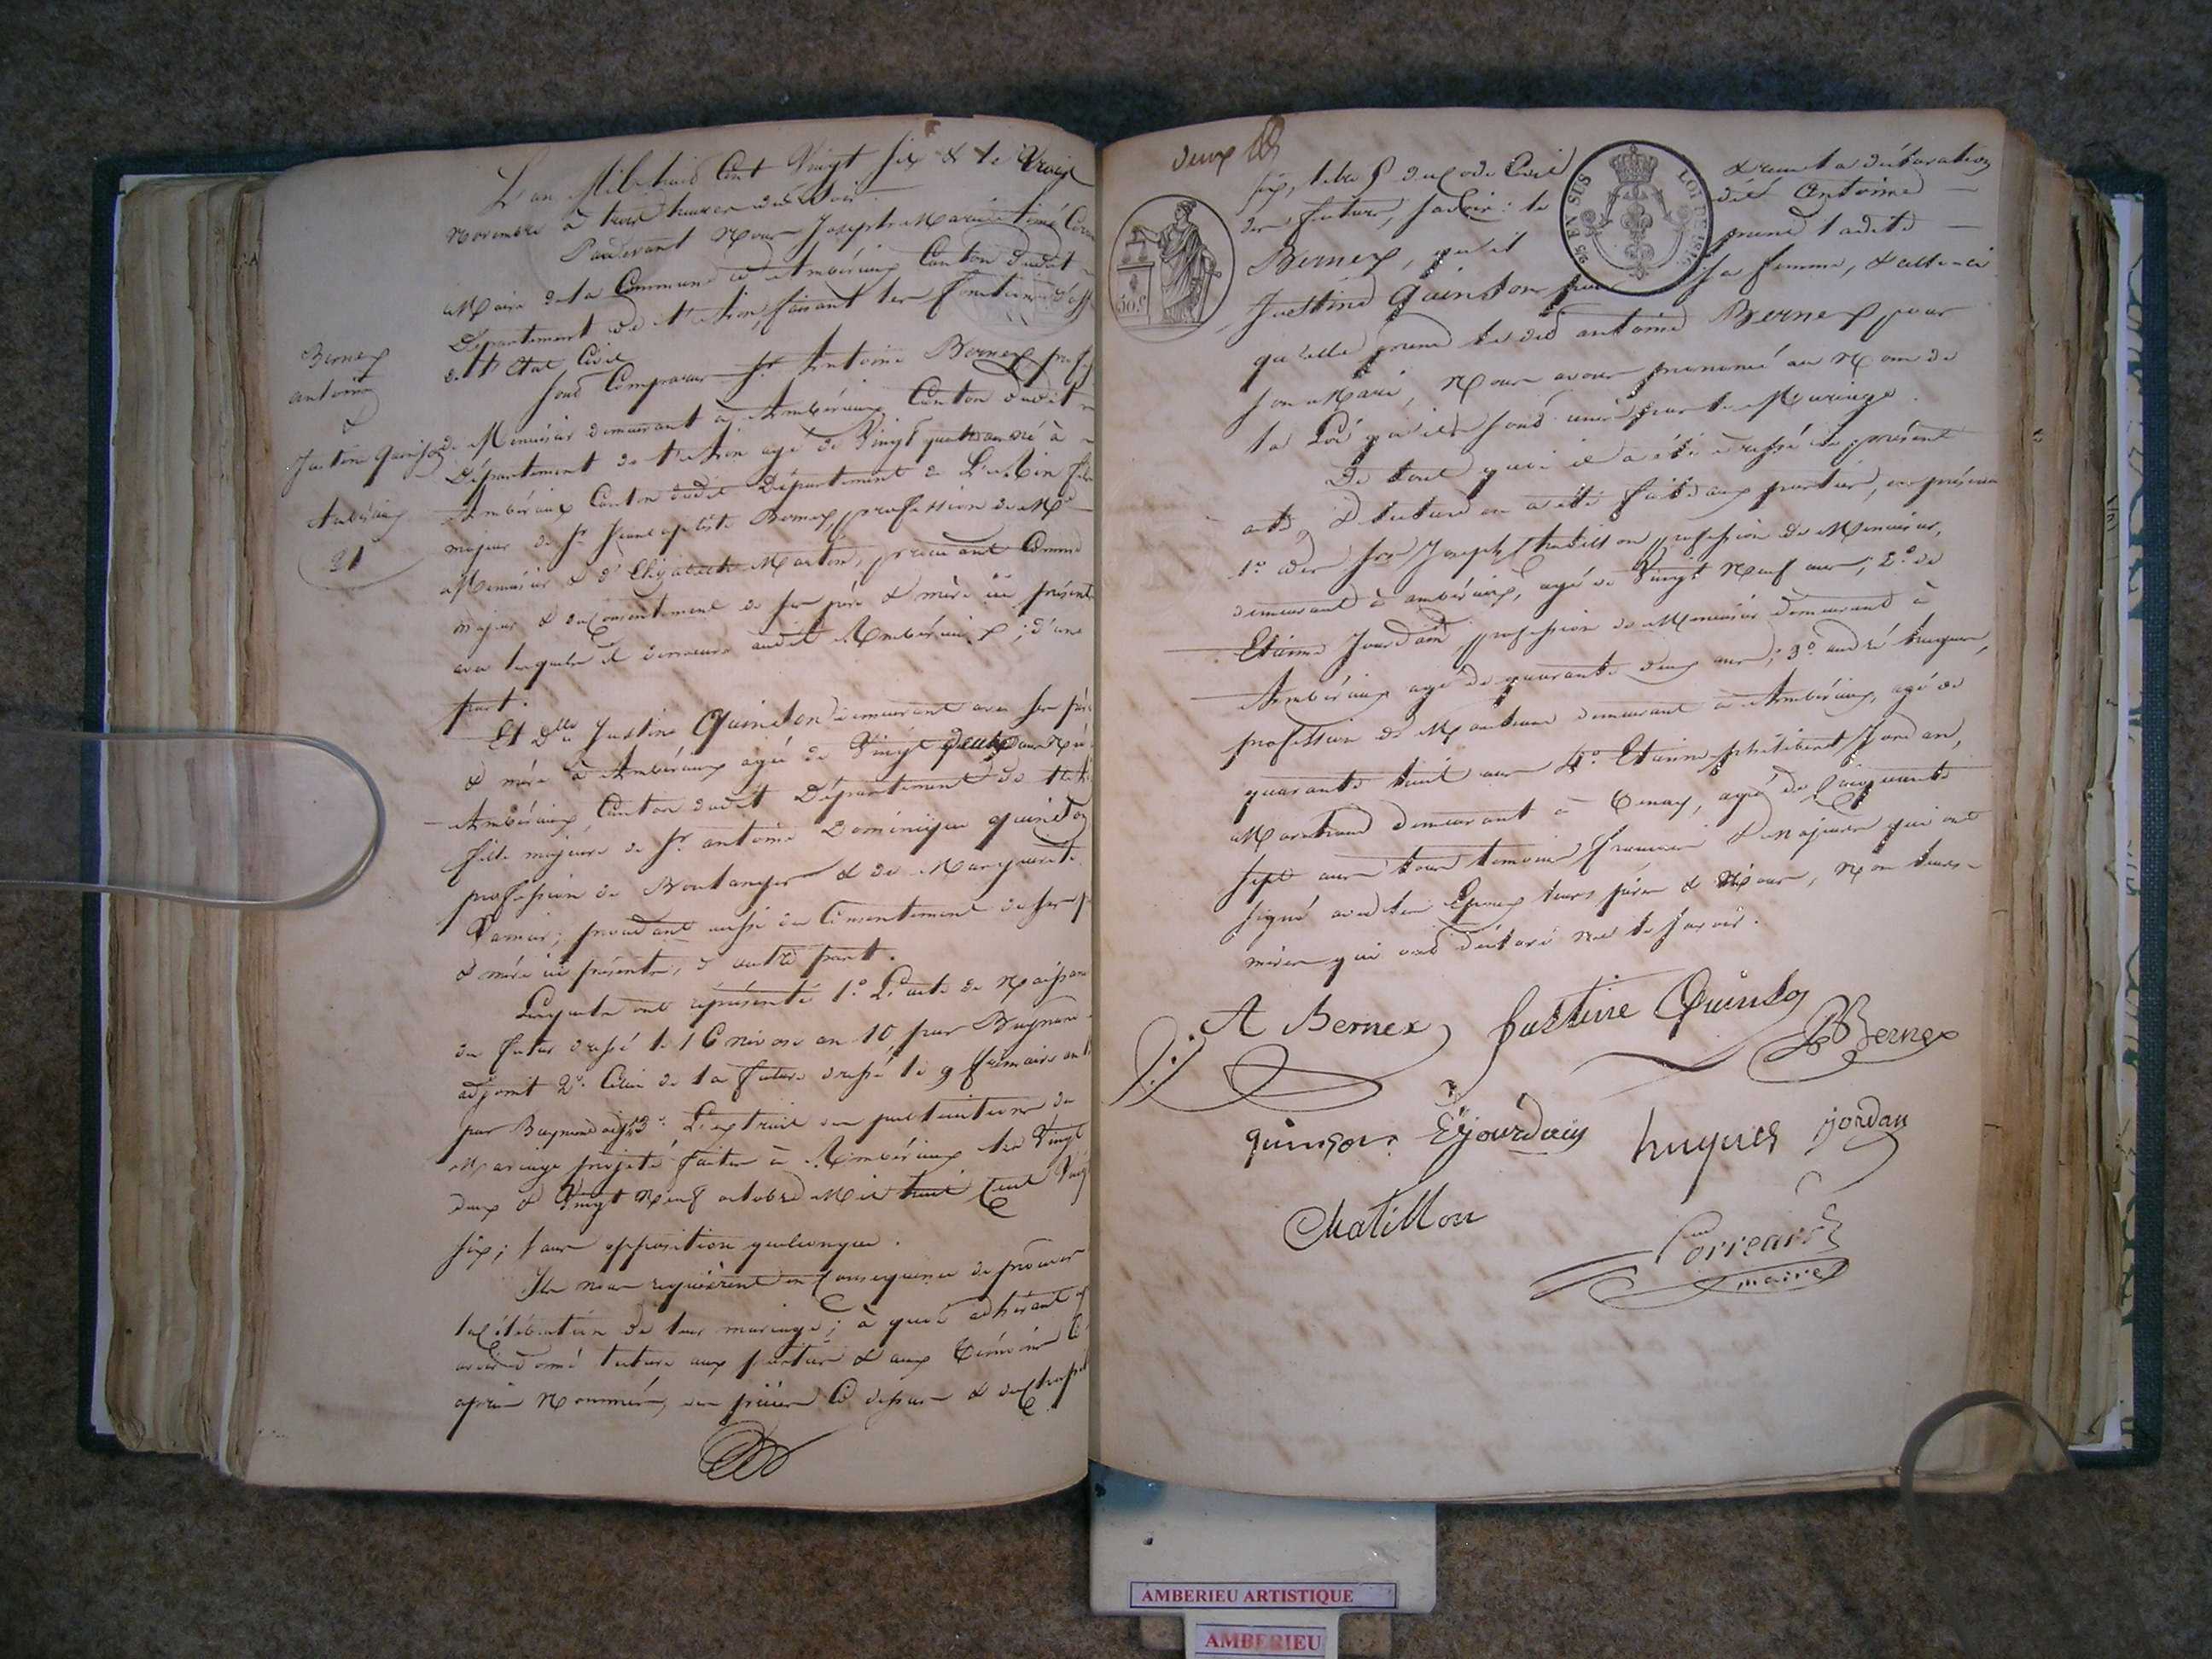 L'an Mil huit Cent Vingt Six & le Trois
Novembre à trois heures du Soir.
Pardevant Nous Joseph Marie Aimé
Maire de la Commune d'Ambérieux Canton dudit
Département de l'Ain, faisant les fonctions d'off
de l'Etat Civil
Sont Comparus Sr Antoine Bernex prof
Bernex
antoine
&
Justine Quinson
Ambérieux
21
de Menuisier demeurant à Ambérieux Canton dudit
Département de l'Ain agé de Vingt quatre ans né à
Ambérieux Canton dudit Département de L'Ain fils
majeur de Sr Jean Baptiste Bernex, profession de Md
Menuisier & de Elizabeth Martin, procédant Comme
majeur & du Consentement de ses père & mère ici présents
avec lesquels il demeure audit Ambérieux ; d'une
part.
Et Dlle Justine Quinson demeurant avec ses père
& mère à Ambérieux agée de Vingt deux ans Née
Ambérieux, Canton dudit Département de l'Ain
fille majeure de Sr antoine Dominique quinson
profession de Boulanger & de Marguerite
; procédant aussi du Consentement de ses p
& mère ici présents, d'autre part.
Lesquels ont représenté 1.° L'acte de Naissance
du futur dressé le 16 nivose an 10, par
adjoint 2.° Celui de la future dressé le 9 frimaire an
par adjt 3.° L'extrait des publications du
Mariage projeté faites à Ambérieux les Vingt
deux & Vingt Neuf octobre Mil huit Cent Vingt
six ; sans opposition quelconque.
Ils nous requièrent en Conséquence de procéder
la Célébration de leur mariage ; à quoi adhérant
avoir donné lecture aux parties & aux témoins Ci
après Nommés, des pièces Ci dessus & du Chapitre
deux
six, titre 5 du Code Civil & reçu la déclaration
des futurs, savoir : le dit Antoine
Bernex, qu'il prend ladite
Justine Quinson pour sa femme, & celle-ci
qu'elle prend ledit antoine Bernex pour
son Mari, Nous avons prononcé au Nom de
la Loi qu'ils sont unis par le Mariage.
De tout quoi il a été dressé le présent
acte, & lecture en a été faite aux parties, en présence
1.° des Srs Joseph Chatillon profession de Menuisier,
demeurant à ambérieux, agé de Vingt Neuf ans ; 2.° de
Etienne Jourdain profession de Menuisier demeurant à
Ambérieux agé de quarante deux ans ; 3.° andré hugues,
profession de demeurant à Ambérieux, agé de
quarante huit ans 4.° Etienne philibert Jordan,
Marchand demeurant à Tenay, agé de Cinquante
Sept ans tous témoins français & majeurs qui ont
signé avec les Epoux leurs pères & Nous, Non leurs
mères qui ont déclaré ne le savoir.
A Bernex Justine Quinson Bernex
quinson. E jourdain hugues jordan
Chatillon
Correard
maire
50.C
25 EN SUS
LOI DE 1816
AMBERIEU ARTISTIQUE
AMBERIEU